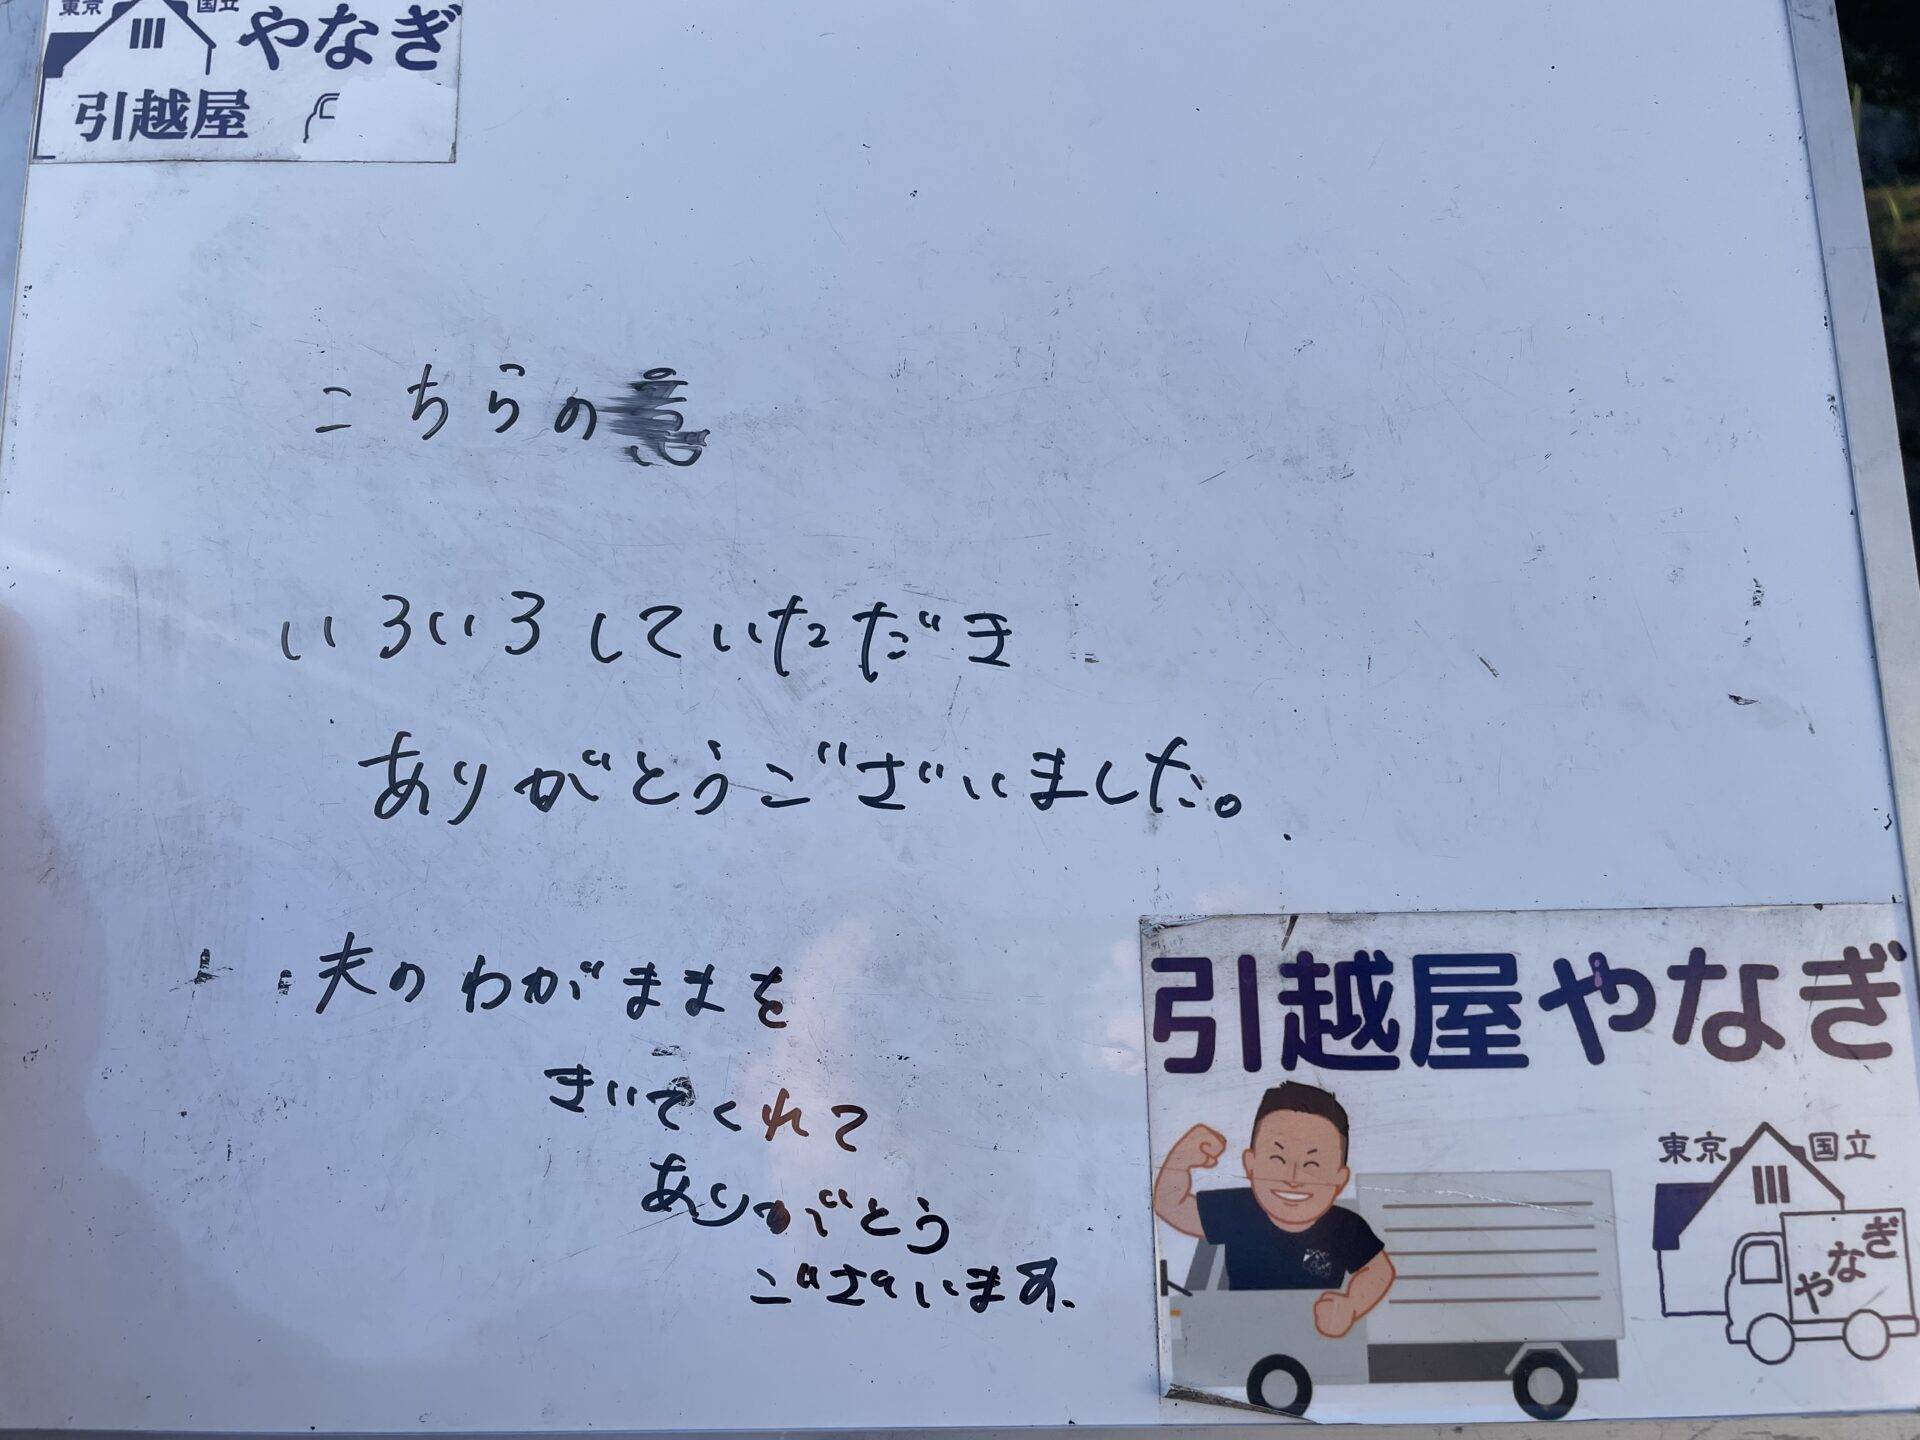 東京 国立
やなぎ
引越屋
こちらの
いろいろしていただき
ありがとうございました。
夫のわがままを
きいてくれて
ありがとう
ございます、
引越屋やなぎ
東京 国立
やなぎ